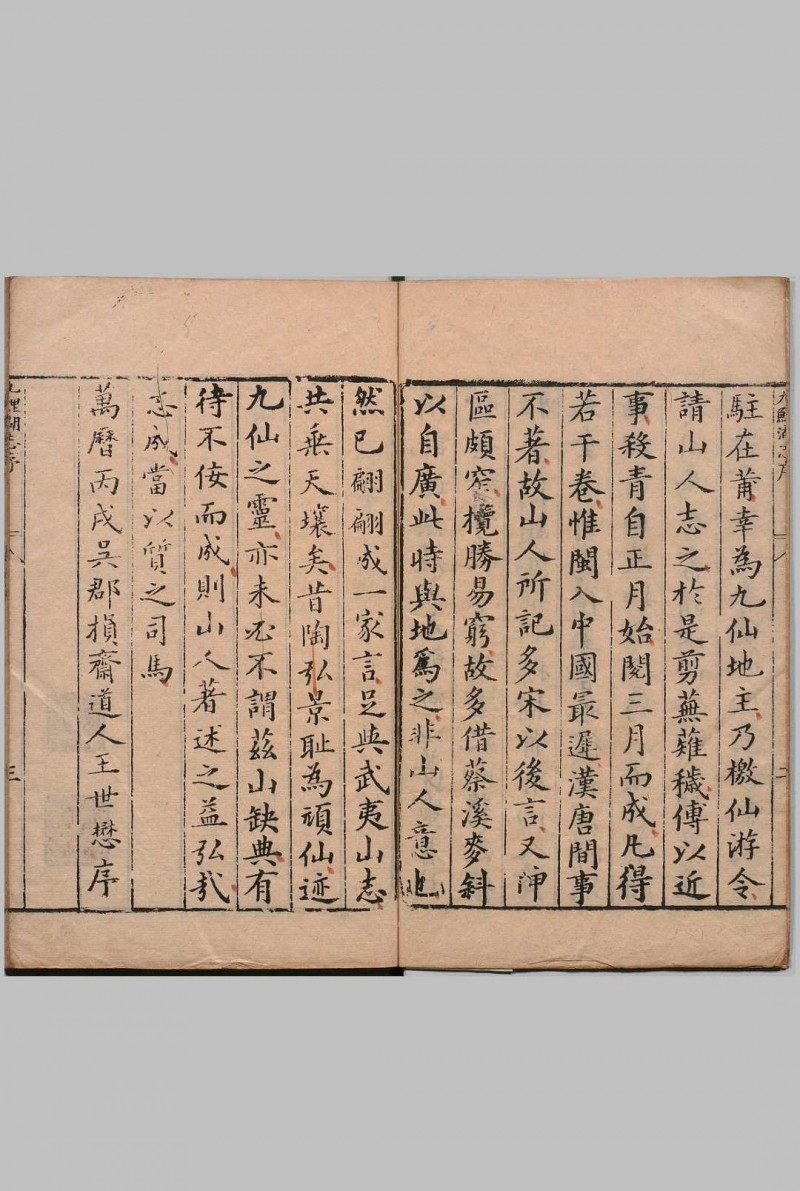 駐在莆幸為九仙地主乃檄仙游令
請山人志之於是剪蕪薙穢傅以近
事殺青自正月始閱三月而成凡得
若干卷惟閩入中國最遲漢唐間事
不著故山人所記多宋以後言又湢
區頗窄攬勝易窮故多借蔡溪麥斜
以自廣此時與地為之非山人意也
然已翩翩成一家言足與武夷山志
共乘天壤矣昔陶弘景耻為頑仙迹
九仙之靈亦未必不謂茲山缺典有
待不佞而成則山人著述之益弘哉
志成當以質之司馬
萬曆丙戌吳郡損齋道人王世懋序
三